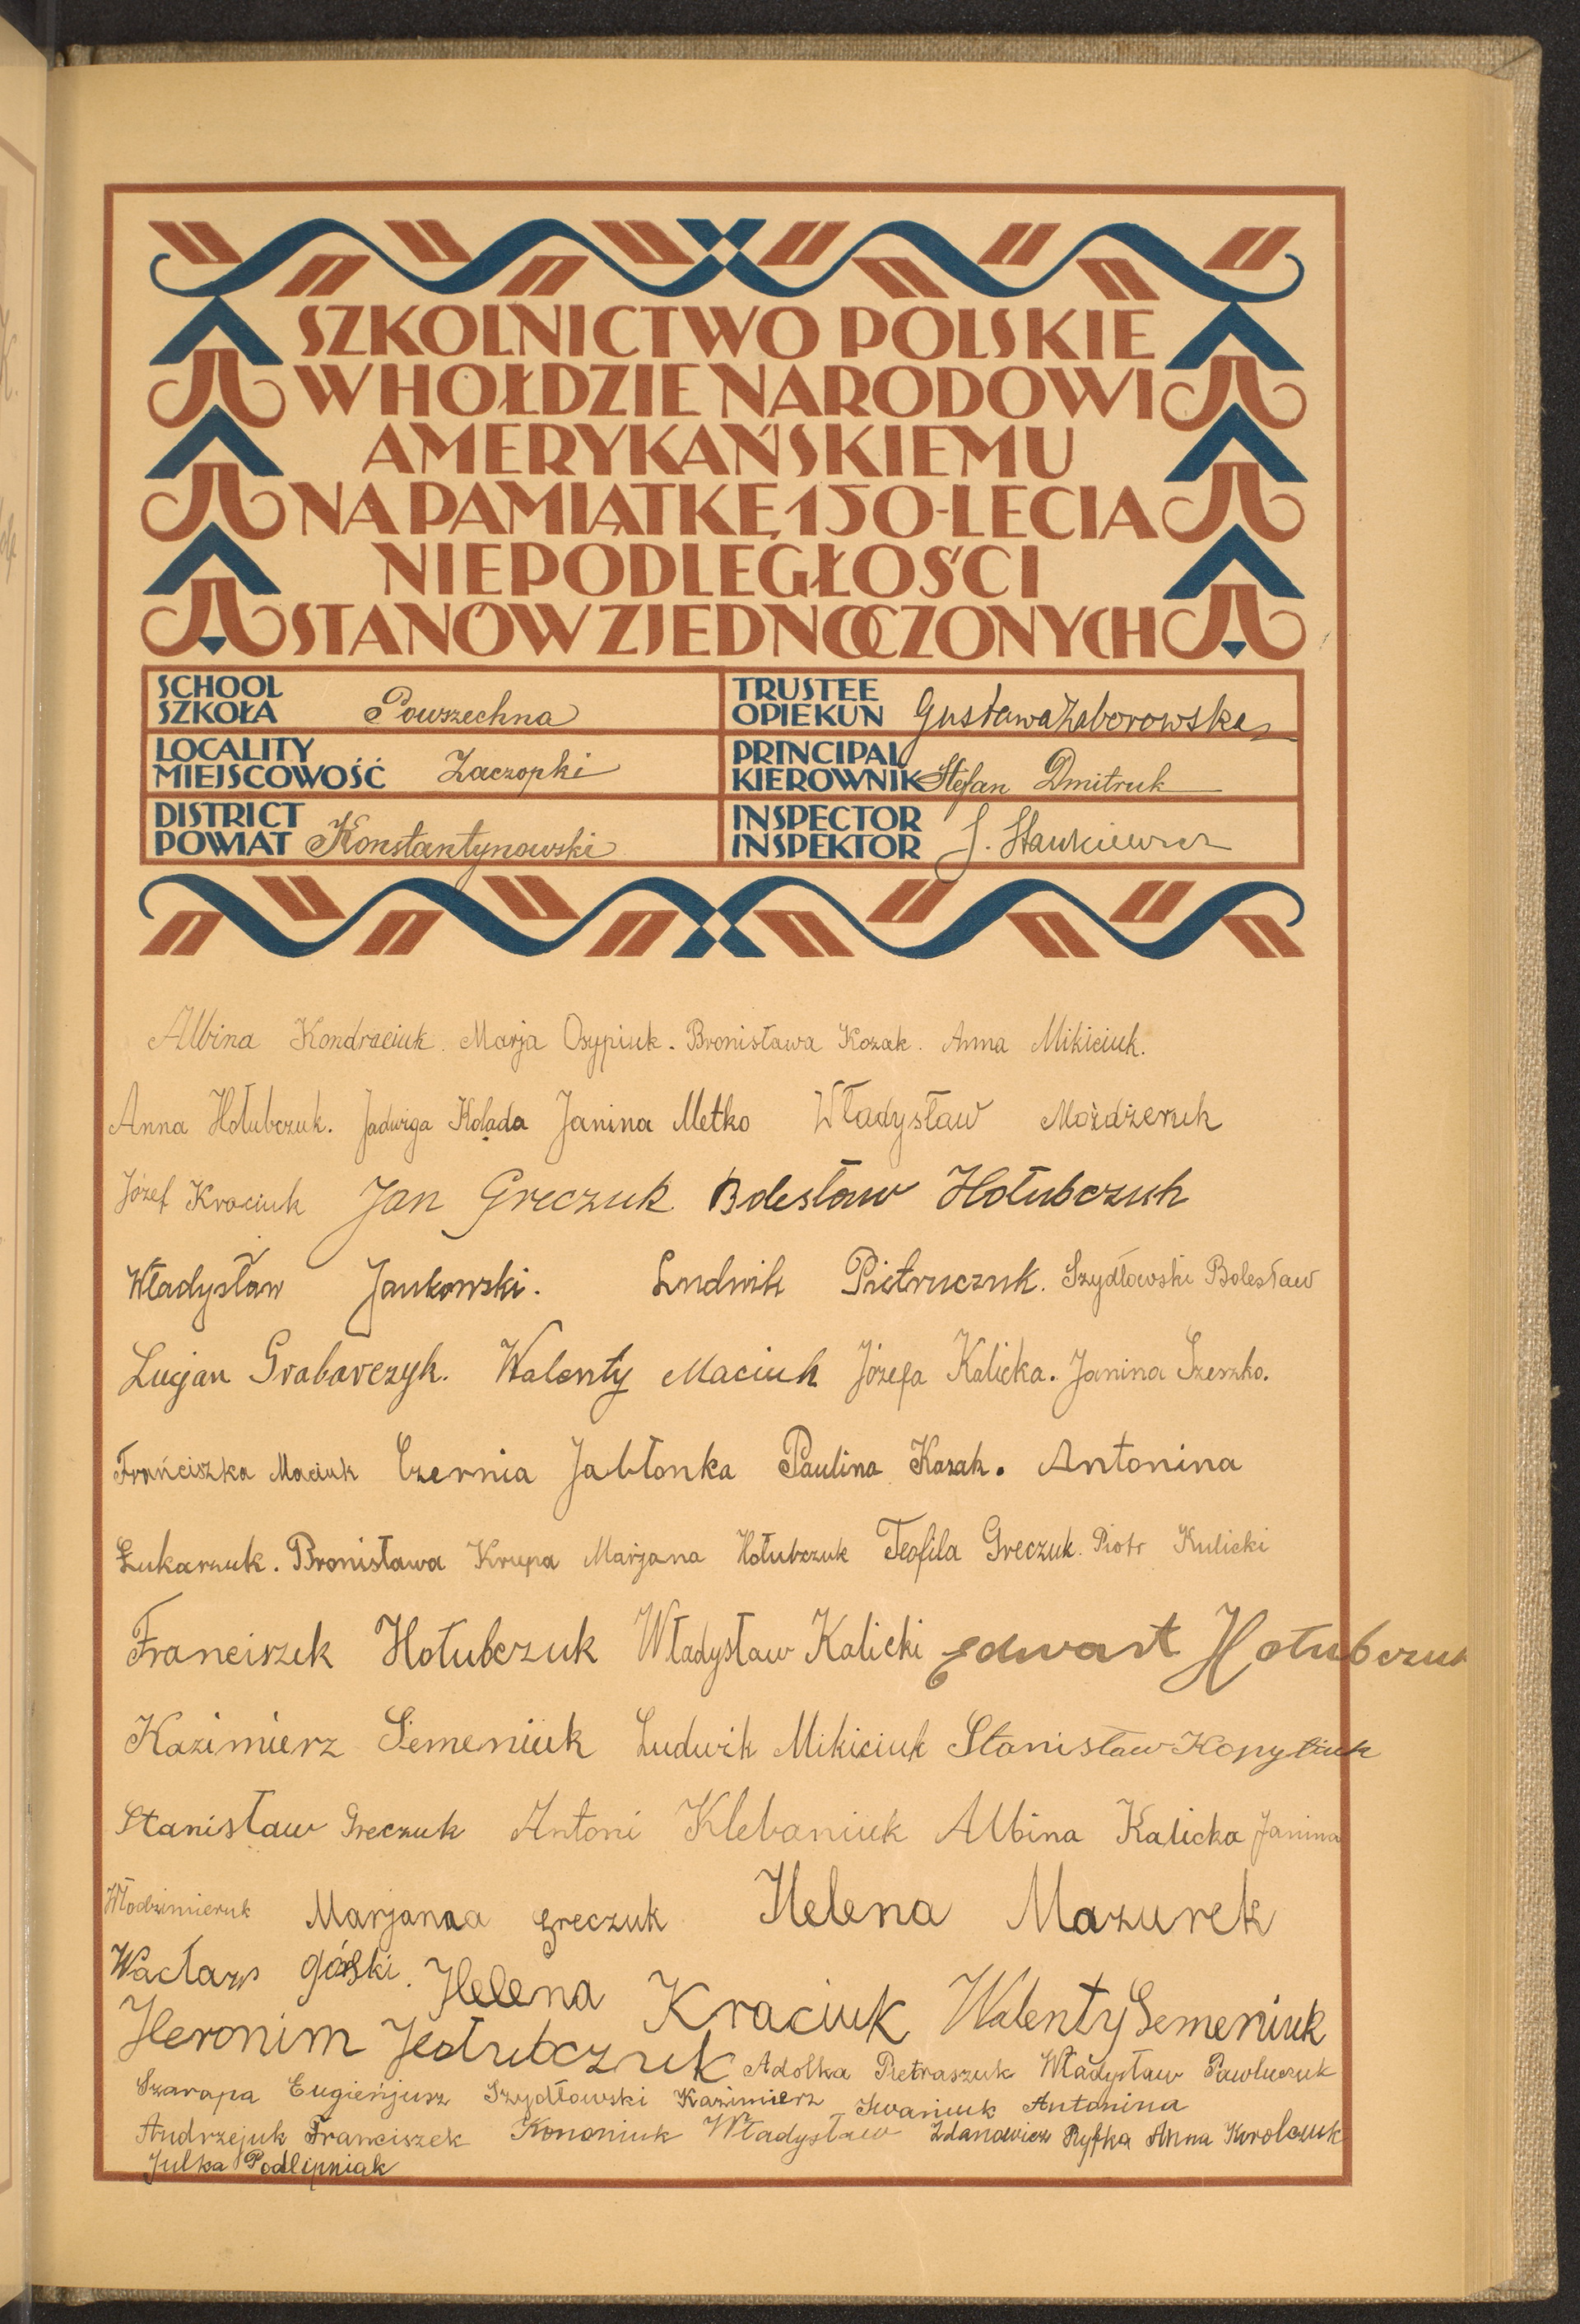 SZKOLNICTWO POLSKIE
W HOŁDZIE NARODOWI
AMERYKAŃSKIEMU
NA PAMIĄTKĘ 150-LECIA
NIEPODLEGŁOŚCI
STANÓW ZJEDNOCZONYCH
SCHOOL
SZKOŁA Powszechna
TRUSTEE
OPIEKUN Gustawa Zaborowska
LOCALITY
MIEJSCOWOŚĆ Zaczopki
PRINCIPAL
KIEROWNIK Stefan Dmitruk
DISTRICT
POWIAT Konstantynowski
INSPECTOR
INSPEKTOR J. Stankiewicz
Albina Kondraciuk. Marja Osypiuk. Bronisława Kozak. Anna Mikiciuk.
Anna Hołubczuk. Jadwiga Kolada Janina Metko Władysław Możdżeruk
Józef Kraciuk Jan Greczuk Bolesław Hołubczuk
Władysław Jankowski. Ludwik Pietruczuk. Szydłowski Bolesław
Lucjan Grabarczyk. Walenty Maciuk Józefa Kalicka. Janina Szeszko.
Frańciszka Maciuk Czernia Jabłonka Paulina Kozak. Antonina
Łukarzuk. Bronisława Krupa Marjana Hołubczuk Teofila Greczuk. Piotr Kulicki
Franciszek Hołubczuk Władysław Kalicki Edwart Hołubczuk
Kazimierz Semeniuk Ludwik Mikiciuk Stanisław Kopytiuk
Stanisław Greczuk Antoni Klebaniuk Albina Kalicka Janina
Włodzimieruk Marjanaa greczuk Helena Mazurek
Wacław górski. Helena Kraciuk Walenty Semeniuk
Heronim Hołubczuk Adolka Pietraszuk Władysław Pawluczuk
Szarapa Eugieńjusz Szydłowski Kazimierz Iwaniuk Antonina
Andrzejuk Franciszek Kononiuk Władysław Zdanowicz Ryfka Anna Korolczuk
Julka Podlipniak